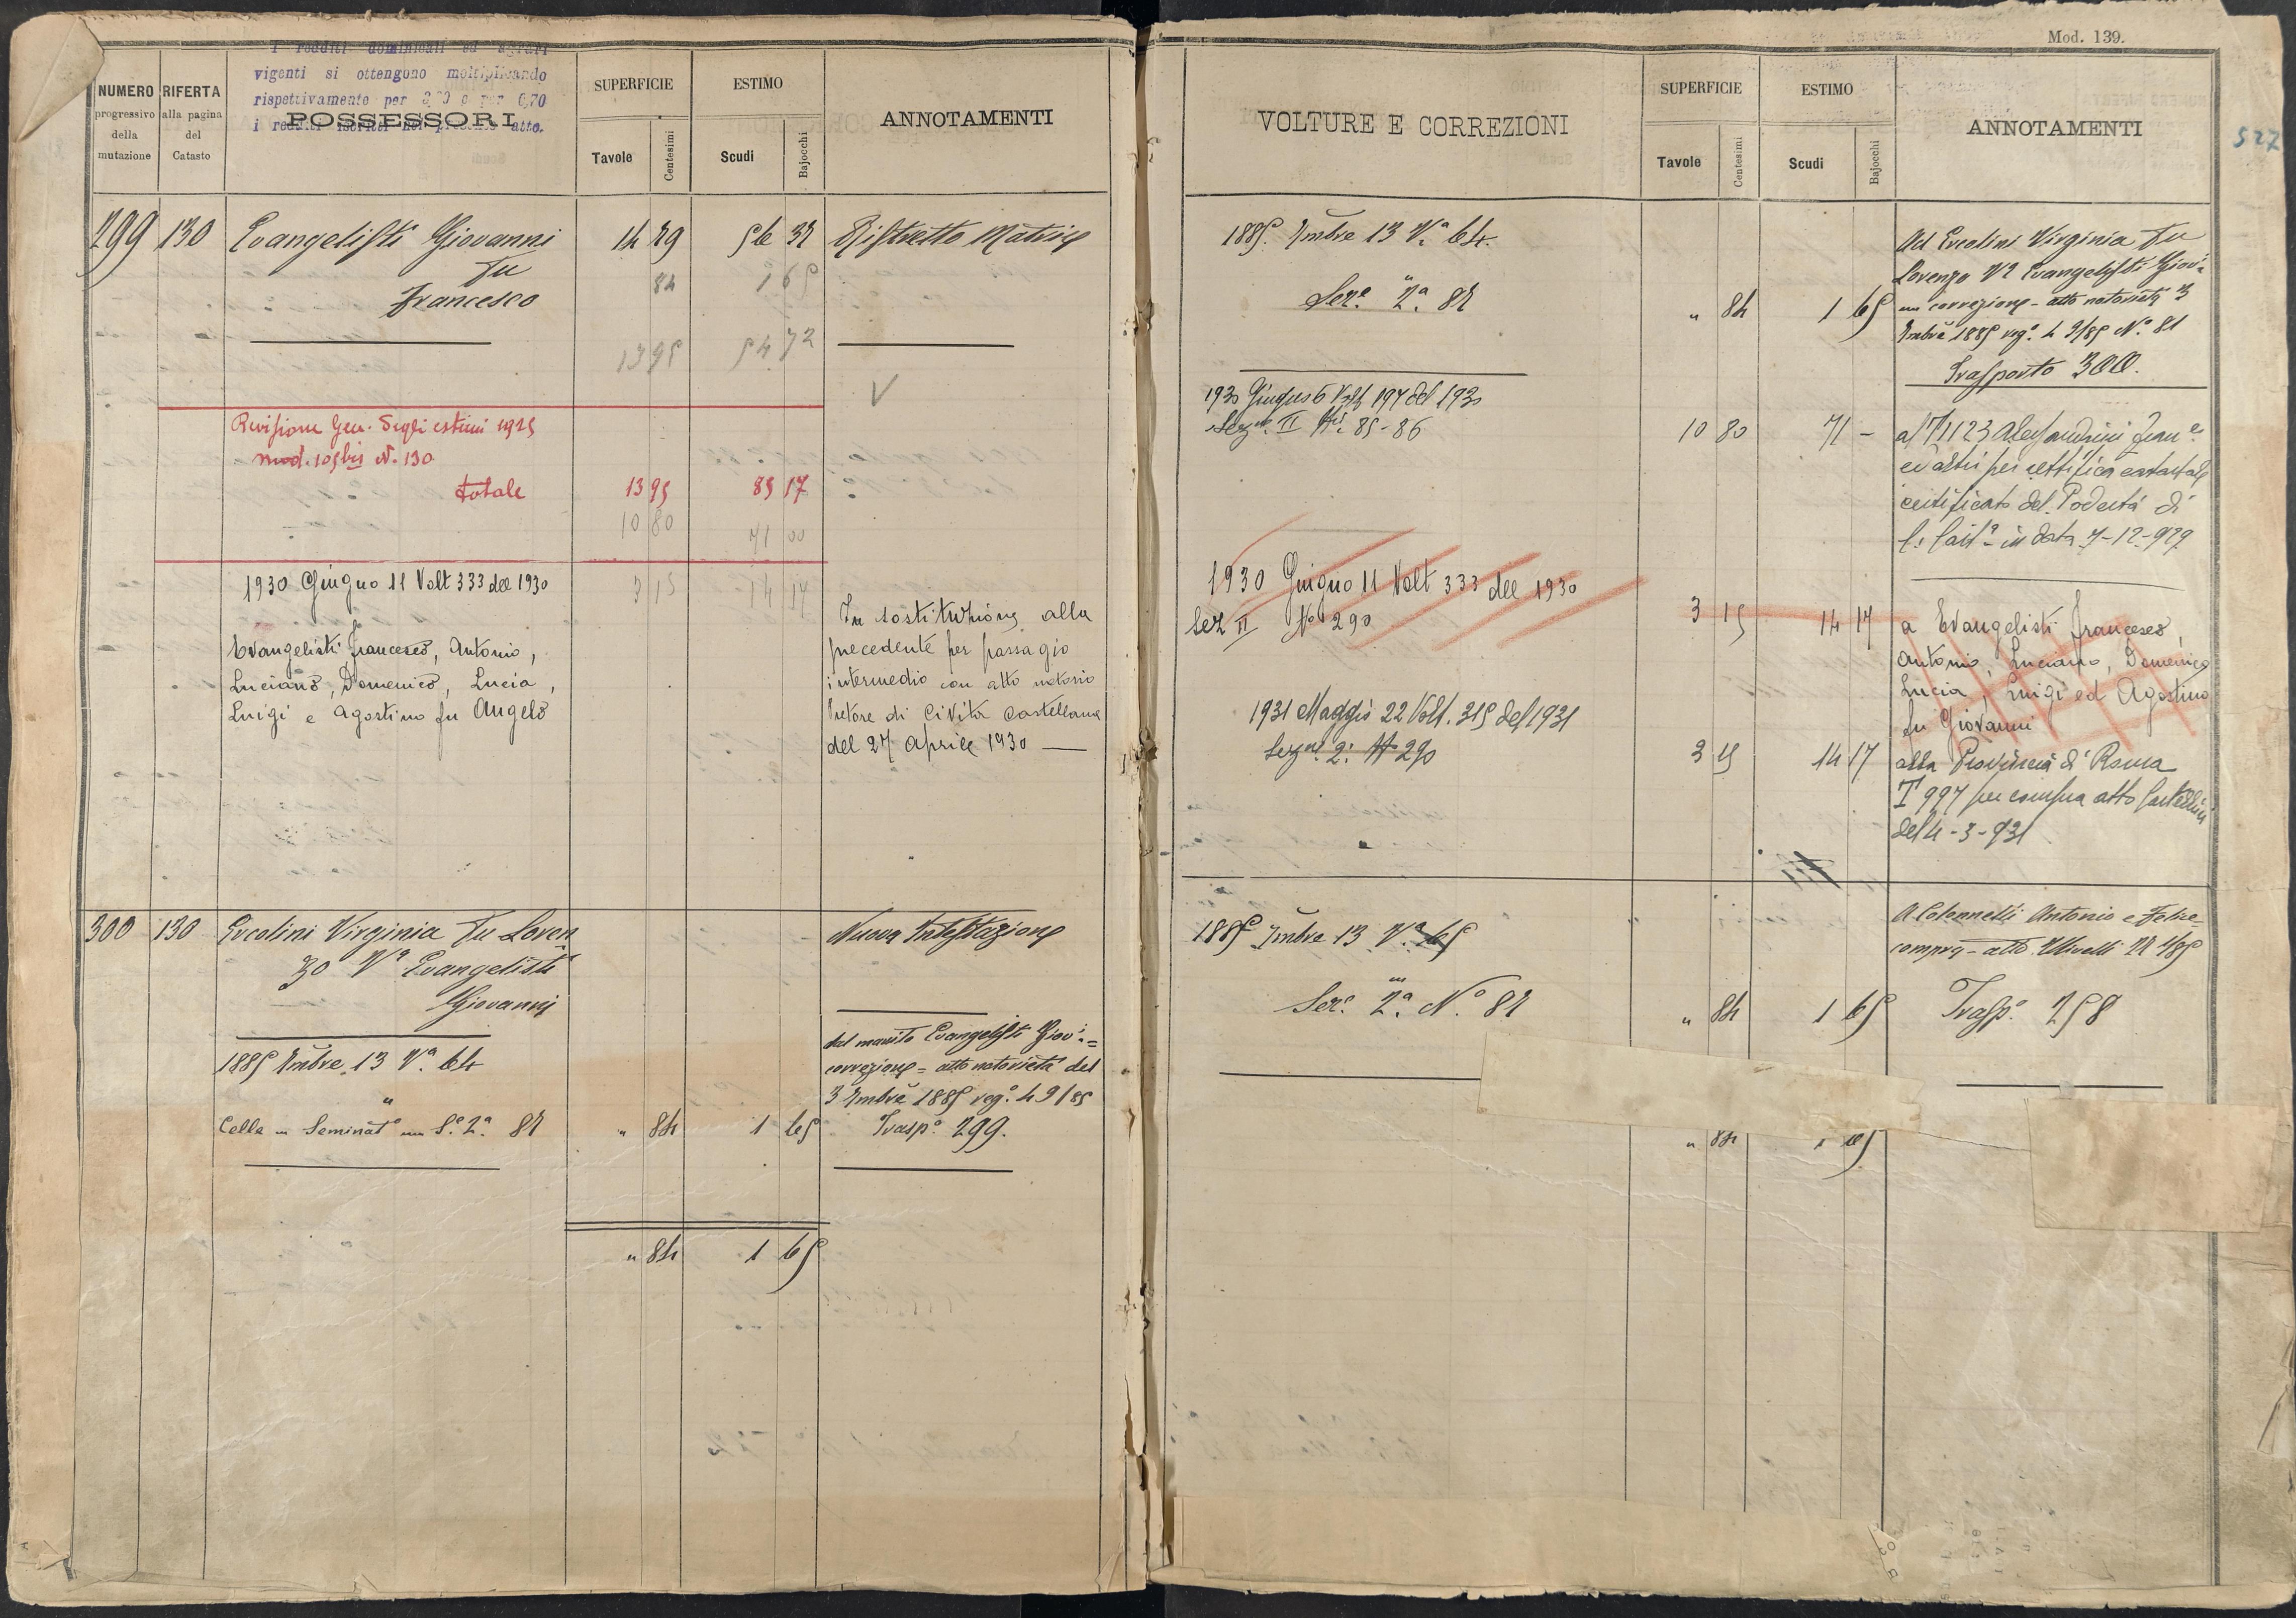 I redditi dominicali ed agrari
vigenti si ottengono moltiplicando
rispettivamente per e per 0,70
i redditi iscritti nel presente atto.
NUMERO
progressivo
della
mutazione
RIFERTA
alla pagina
del
Catasto
POSSESSORI
SUPERFICIE
Tavole
Centesimi
ESTIMO
Scudi
Bajocchi
ANNOTAMENTI
299 130 Evangelisti Giovanni 14 79 56 37 Ristretto Matrice
fu 84 1 65
Francesco
13 95 54 72
V
Revisione Gen. degli estimi 1925
mod. 105 bis N. 130
totale 13 95 85 17
10 80 71 00
1930 Giugno 11 Volt 333 del 1930 3 15 14 17
Evangelisti Francesco, Antonio,
Luciano, Domenico, Lucia,
Luigi e Agostino fu Angelo
In sostituzione alla
precedente per passagio
intermedio con atto notorio
Pretore di Civita Castellana
del 27 Aprile 1930 —
300 130 Ercolini Virginia fu Loren Nuova Intestazione
zo Va Evangelisti
Giovanni
1885 Xmbre 13 Va 64
Celle Seminat° S. 2a 82 " 84 1 65
dal marito Evangelisti Giov.
correzione = atto notorietà del
3 Xmbre 1885 reg. 49/85
Trasp. 299.
" 84 1 65
Mod. 139.
527
VOLTURE E CORREZIONI
SUPERFICIE
Tavole
Centesimi
ESTIMO
Scudi
Bajocchi
ANNOTAMENTI
1885. Xmbre 13 Va 64.
Sez. 2a. 82 " 84 1 65
Ad Ercolini Virginia fu
Lorenzo Va Evangelisti Giov.
correzione - atto notorietà 3
Xmbre 1885 reg. N° 81
Trasporto 300.
1930 Giugno 6 Volt 197 del 1930
Sezne. II Ni. 85-86 10 80 71 -
al T1123 Alessandrini Fran
ed altri per rettifica catastale
certificato del Podestà di
C. Cast. in data 7-12-929
1930 Giugno 11 Volt 333 del 1930
Sez II N° 290 3 15 14 17
a Evangelisti Francesco,
Antonio, Luciano, Domenico
Lucia, Luigi ed Agostino
fu Giovanni
1931 Maggio 22 Volt. 315 del 1931
Sezne. 2. N 290 3 15 14 17
alla Provincia di Roma
T 997 per compra atto
del 4-3-931
1885 Xmbre 13 Va 65
Sez. 2a. N° 82 " 84 1 65
A Colonnelli Antonio e Felice
compra - atto
Trasp. 258
" 84 1 65